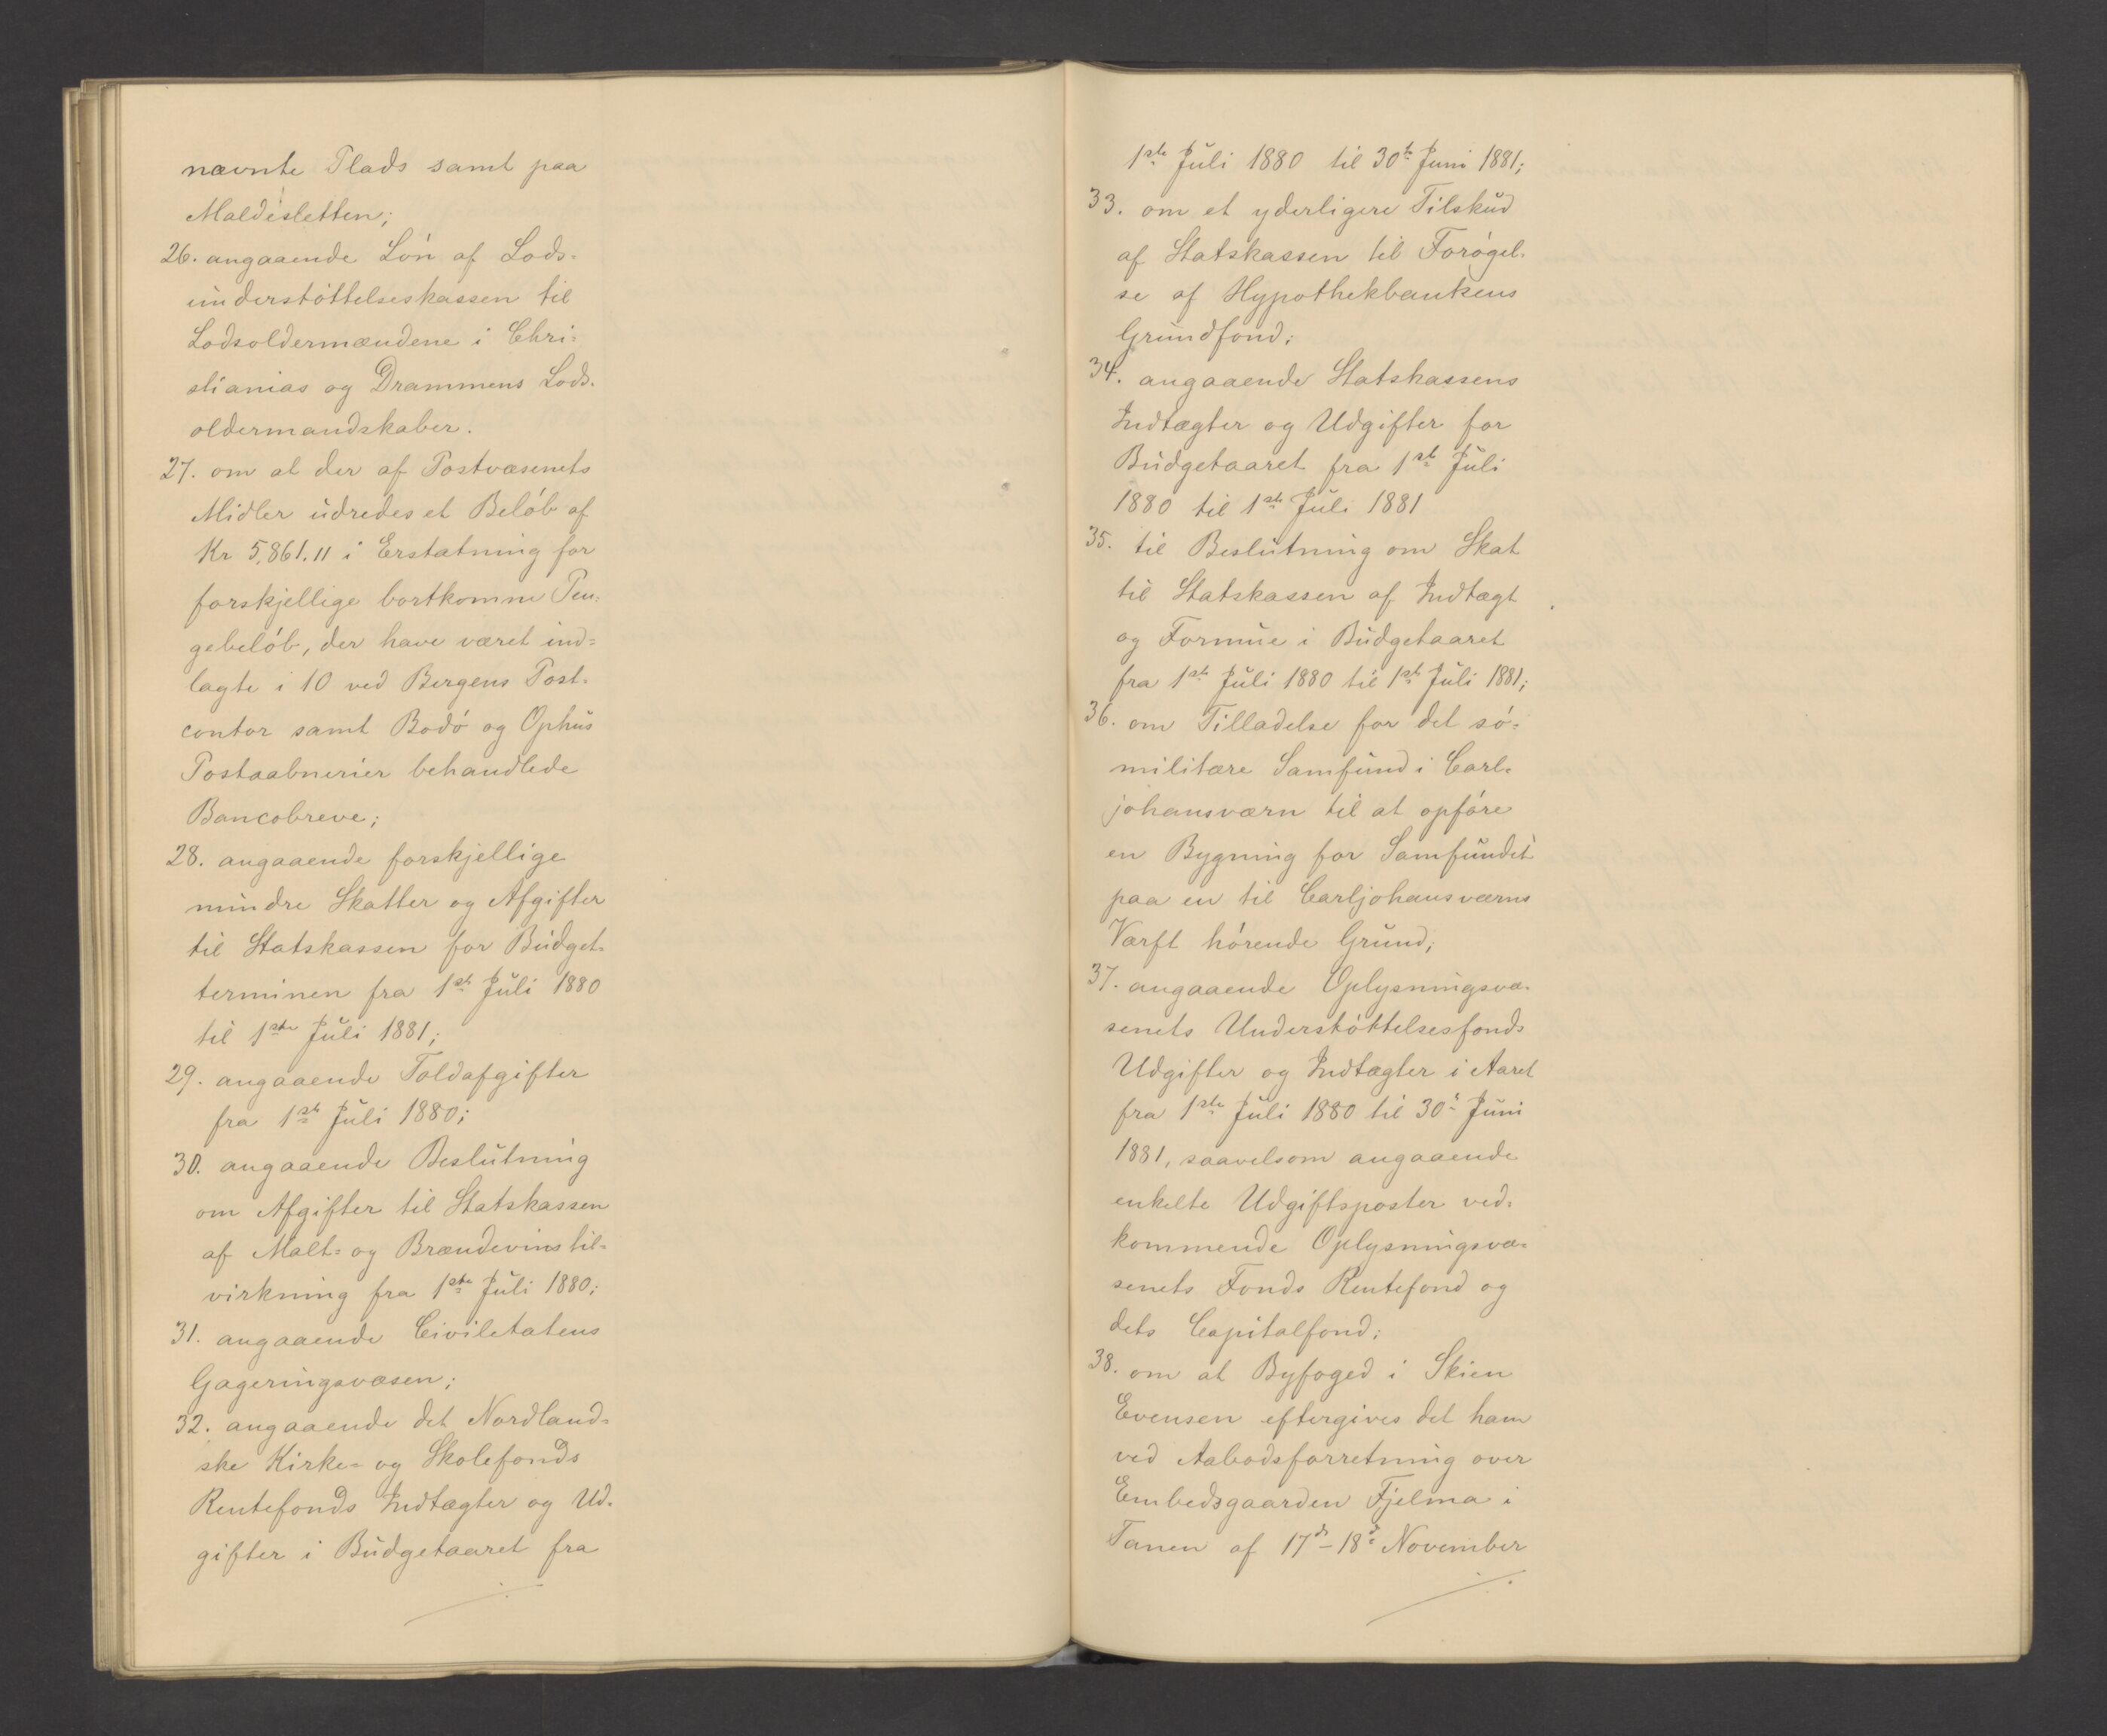 nævnte Plads samt paa
Maldesletten;
26. angaaende Lón af Lods-
understóttelseskassen til
Lodsoldermændene i Chri-
stianias og Drammens Lods-
oldermandskaber.
27. om at der af Postvæsenets
Midler udredes et Belób af
Kr 5,861.11 i Erstatning for
forskjellige bortkomne Pen-
gebelób, der have været ind-
lagte i 10 ved Bergens Post-
contor samt Bodó og Ophus
Postaabnerier behandlede
Bancobreve;
28. angaaende forskjellige
mindre Skatter og Afgifter
til Statskassen for Budget-
terminen fra 1ste Juli 1880
til 1ste Juli 1881;
29. angaaende Toldafgifter
fra 1ste Juli 1880;
30. angaaende Beslutning
om Afgifter til Statskassen
af Malt- og Brændevinstil-
virkning fra 1ste Juli 1880;
31. angaaende Civiletatens
Gageringsvæsen;
32. angaaende det Nordland-
ske Kirke- og Skolefonds
Rentefonds Indtægter og Ud-
gifter i Budgetaaret fra
1ste Juli 1880 til 30te Juni 1881;
33. om et yderligere Tilskud
af Statskassen til Forógel-
se af Hypothekbankens
Grundfond;
34. angaaende Statskassens
Indtægter og Udgifter for
Budgetaaret fra 1ste Juli
1880 til 1ste Juli 1881
35. til Beslutning om Skat
til Statskassen af Indtægt
og Formue i Budgetaaret
fra 1ste Juli 1880 til 1ste Juli 1881;
36. om Tilladelse for det só-
militære Samfund i Carl-
johansværn til at opfóre
en Bygning for Samfundet
paa en til Carljohansværns
Værft hórende Grund;
37. angaaende Oplysningsvæ-
senets Understóttelsesfonds
Udgifter og Indtægter i Aaret
fra 1ste Juli 1880 til 30te Juni
1881, saavelsom angaaende
enkelte Udgiftsposter ved-
kommende Oplysningsvæ-
senets Fonds Rentefond og
dets Capitalfond;
38. om at Byfoged i Skien
Evensen eftergives det ham
ved Aabodsforretning over
Embedsgaarden Fjelma i
Tanen af 17de - 18de November